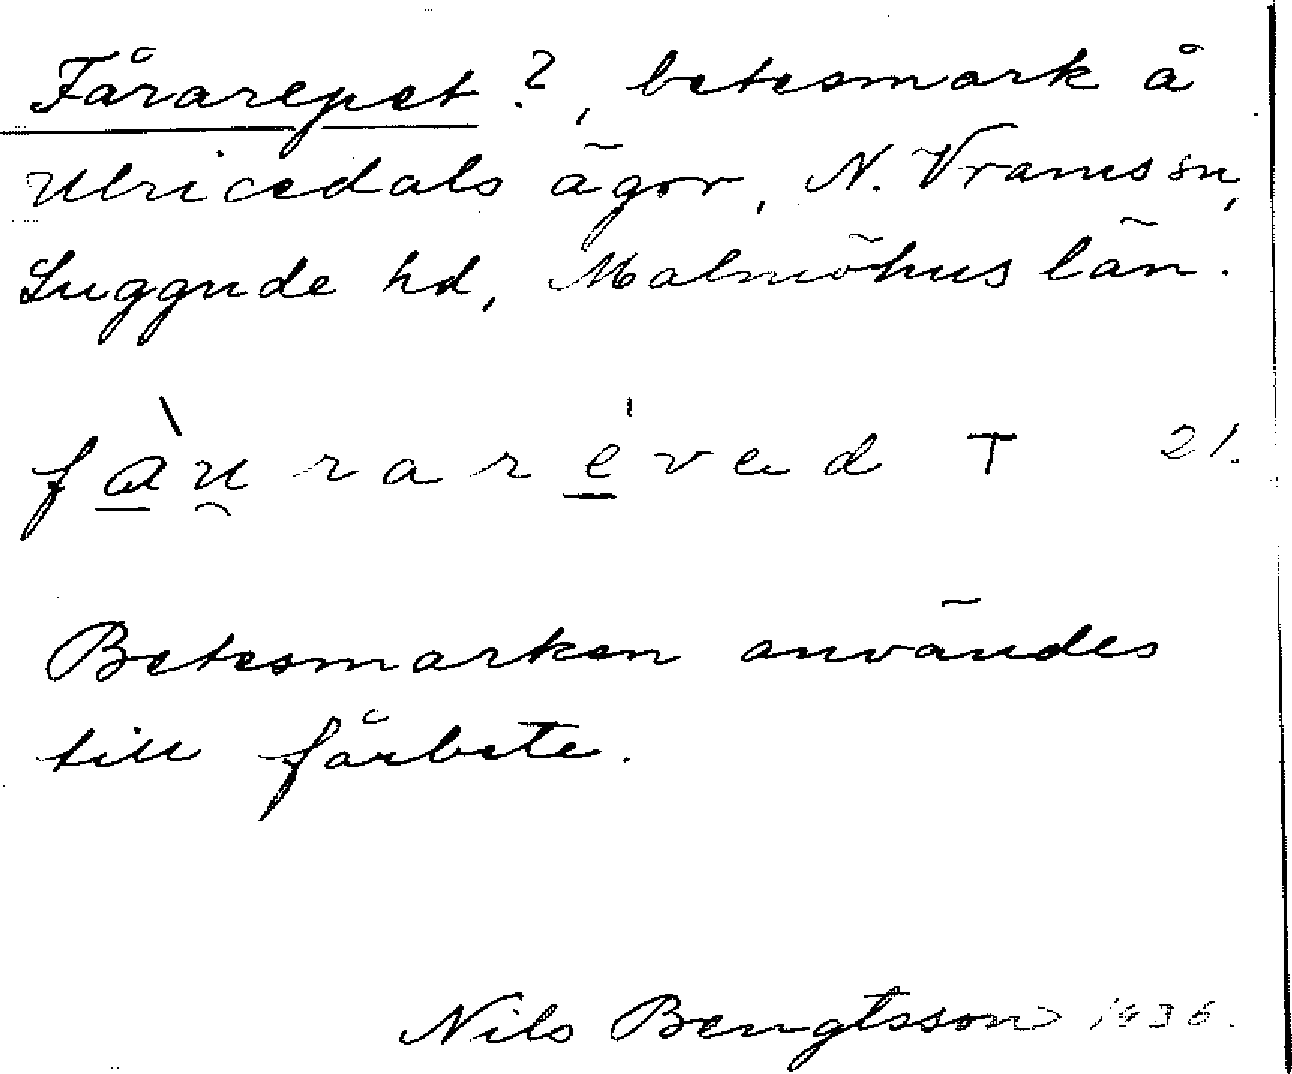 Fårarepet?, betesmark å
Ulricedals ägor, N. Vrams sn,
Luggude hd, Malmöhus län.
fàu̯raréved T 21.
Betesmarken användes
till fårbete.
Nils Bengtsson 1936.